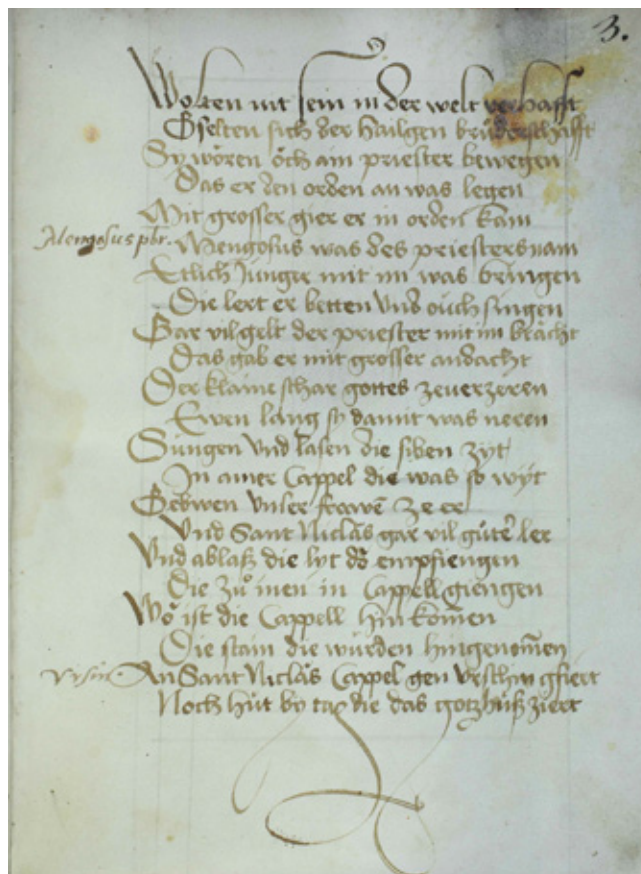 3.
Wolten nit sein in der welt verhafft
Gselten sich der hailgen brůderschafft
Sy wören öch ain priester bewegen
Das er den orden an was legen
Mit grosser gier er in orden kam
Mengosus pbr.
Mengosus was des priesters nam
Etlich Junger mit im was bringen
Die lert er betten Vnd ouch singen
Gar vil gelt der priester mit im bràcht
Das gab er mit grosser andacht
Der klaine schar gottes zeuerzeren
Ewen lang sy damit was neren
Sungen Vnd lasen die siben zyt
In ainer Cappel die was so wyt
Gebwen Vnser frawē ze er
Vnd Sant Niclàs gar vil gůter ler
Vnd ablaß die lyt dŏ empfiengen
Die zů inen in Cappell giengen
Wŏ ist die Cappell hin komēn
Die stain die wurden hingenomēn
Vrsin.
An Sant Niclàs Cappel gen Vrsin gfiert
Noch hüt by tag die das gotzhuß ziert